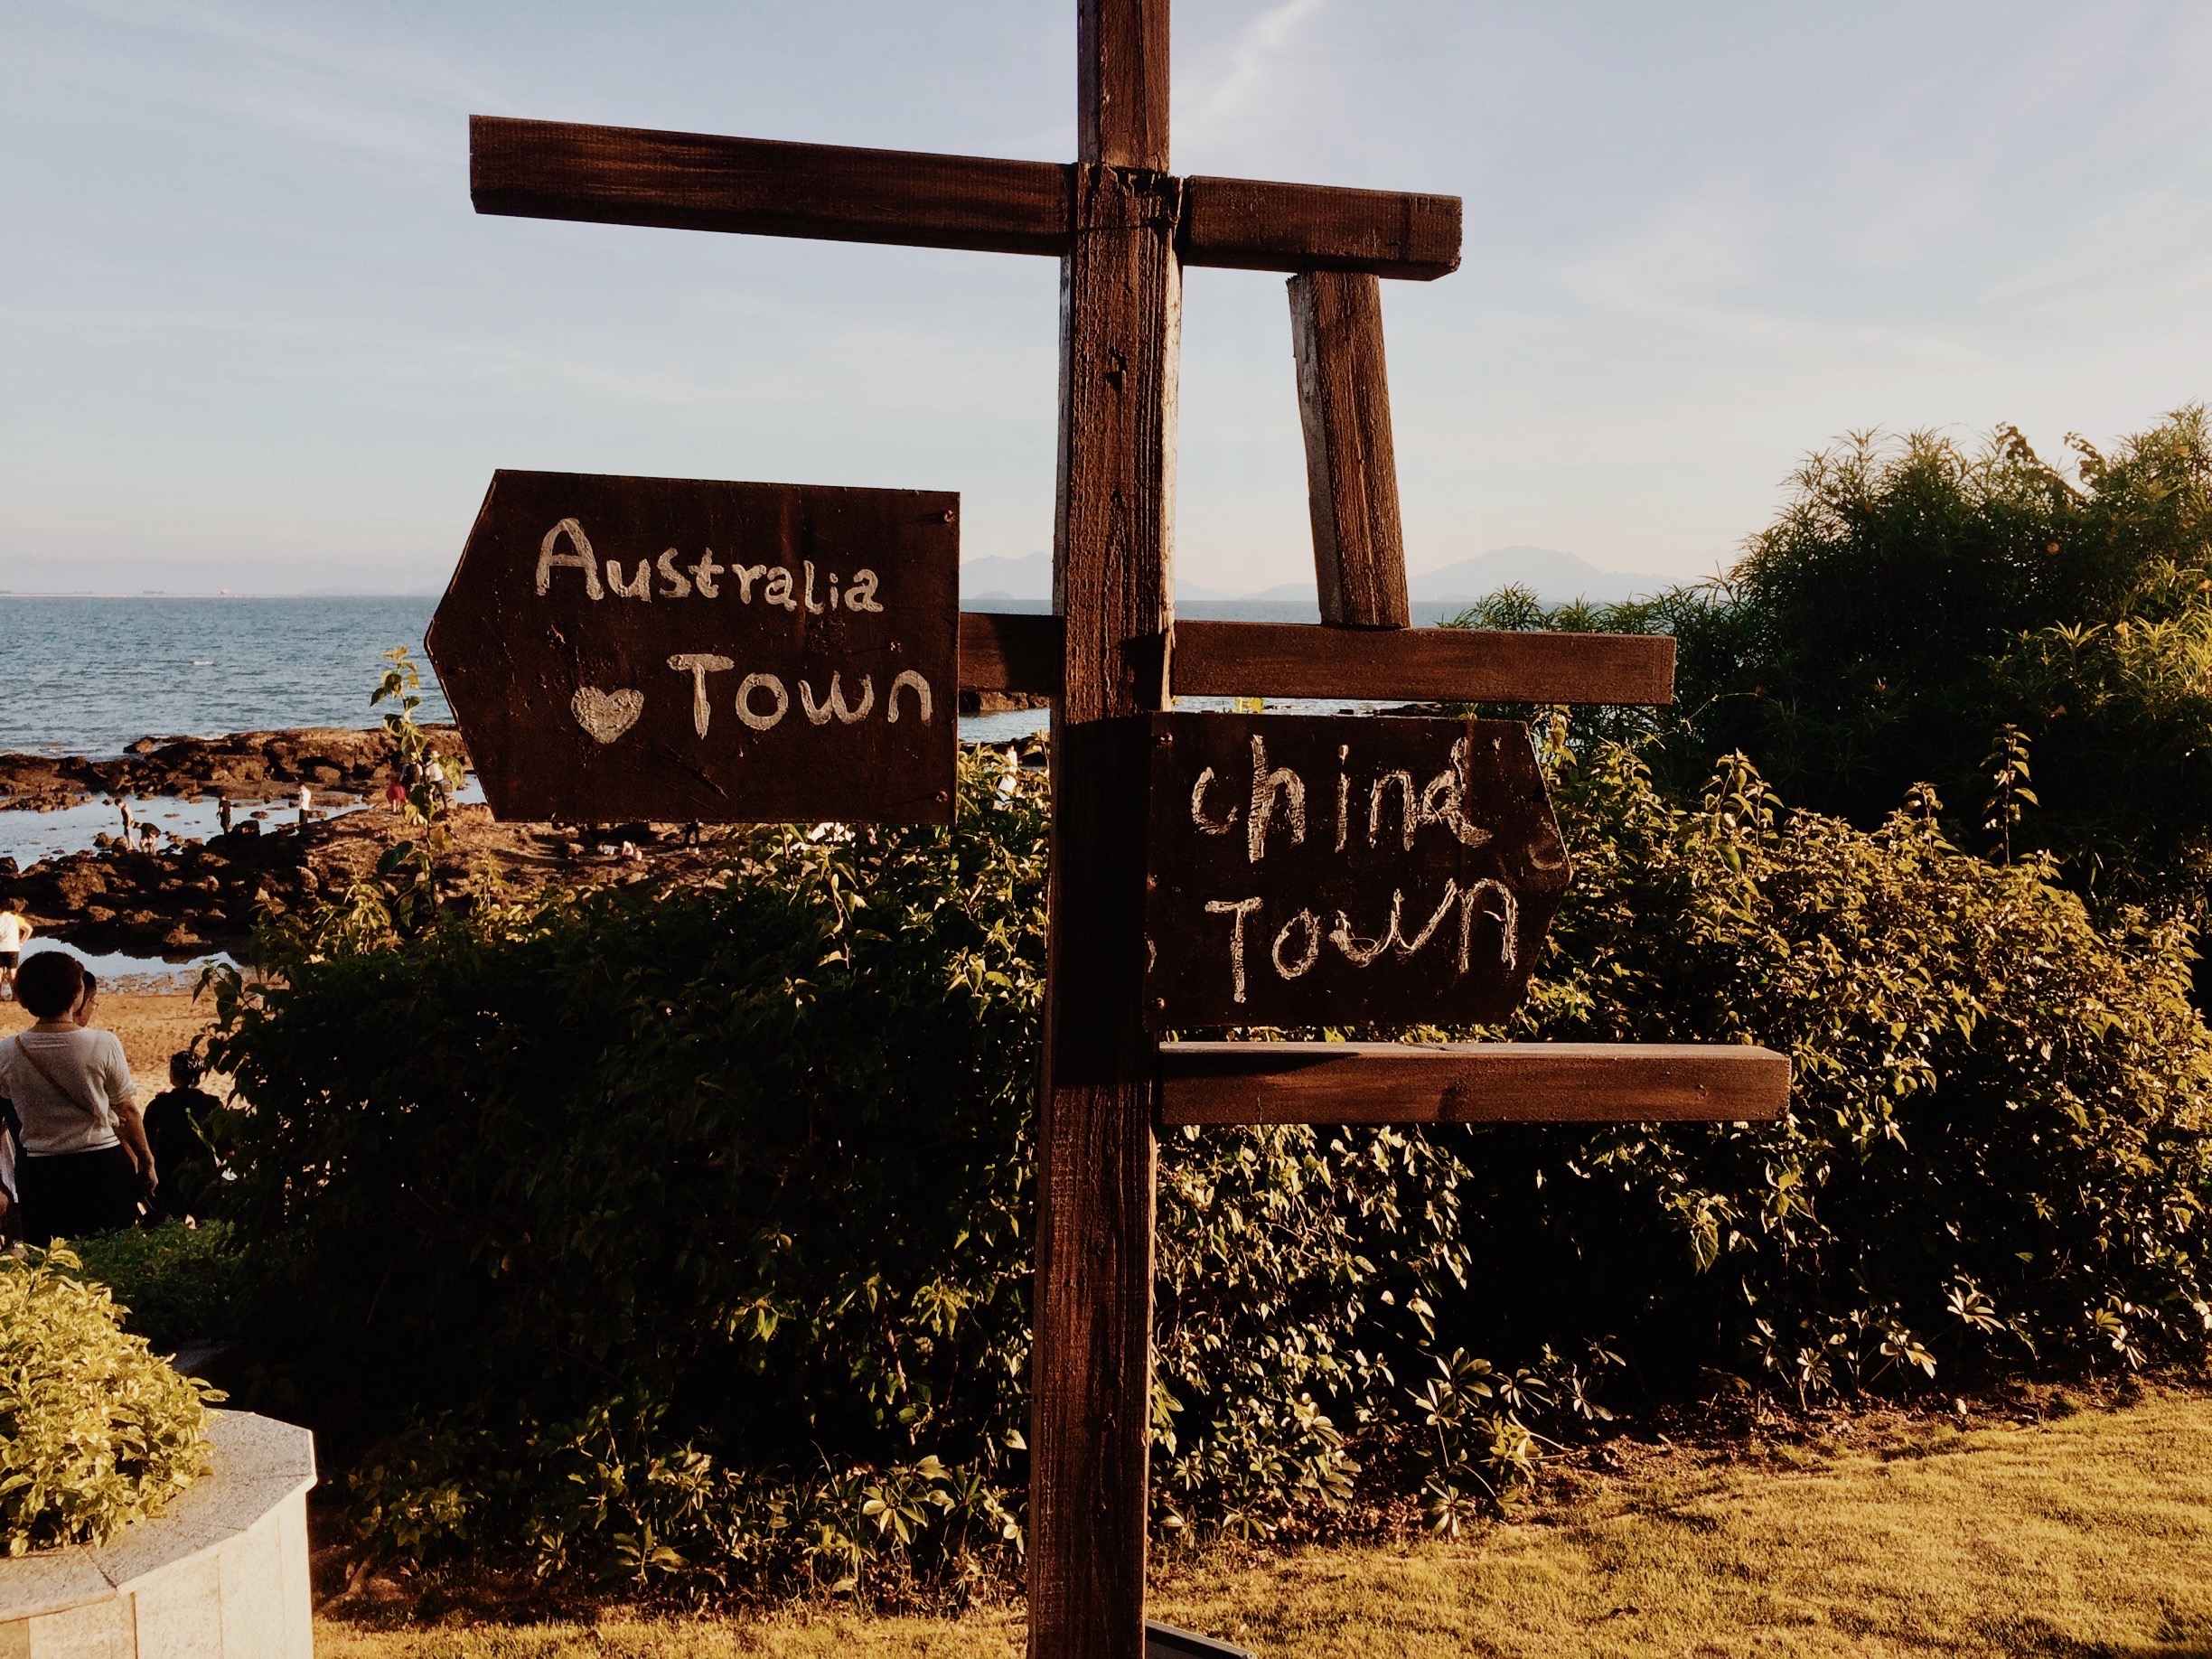 Australia
Town
china
Town